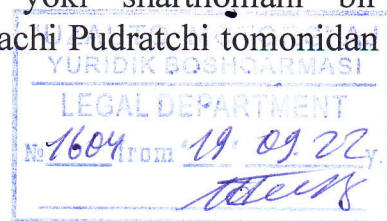 yoki shartnomani bir
achi Pudratchi tomonidan
YURIDIK BOSHQARMASI
LEGAL DEPARTMENT
№ 1604 from 19. 09. 22 y.